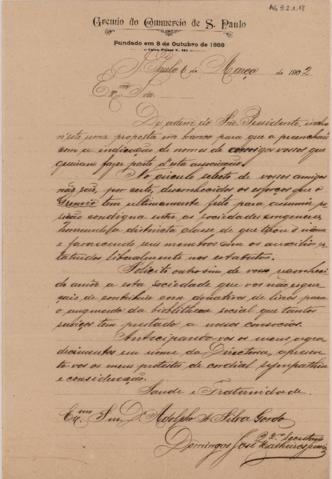 AG 3.2.1.18
Gremio do Commercio de S. Paulo
Fundado em 8 de Outubro de
S. Paulo 6 de Março de 1902
Exmo Snr.
De ordem do Snr. Presidente,
n'este uma proposta em branco para que a
com a indicação de nomes de vossos que
queiram fazer parte d'esta associação.
No circulo selecto de vossos amigos
não são, por certo, desconhecidos os esforços que o
Gremio tem ultimamente feito para assumir po-
sição condigna entre as sociedades congeneres,
honrando a districta classe de que tem o nome
e favorecendo seus membros com os auxilios es-
tatuidos liberalmente nos estatutos.
Solicito outrosim de
de ainda a esta sociedade que vos não
aes de contribuir com donativos de livros para
o augmento da bibliotheca social que tantos
serviços tem prestado a nossos consocios.
Anticipando vos os meus agra-
decimentos em nome da Directoria, apresen-
to vos os meus protestos de cordial sympathia
e consideração.
Saude e Fraternidade.
Exmo Snr. Dr. Adolpho da Silva Gordo
2º Secretario
Domingos José